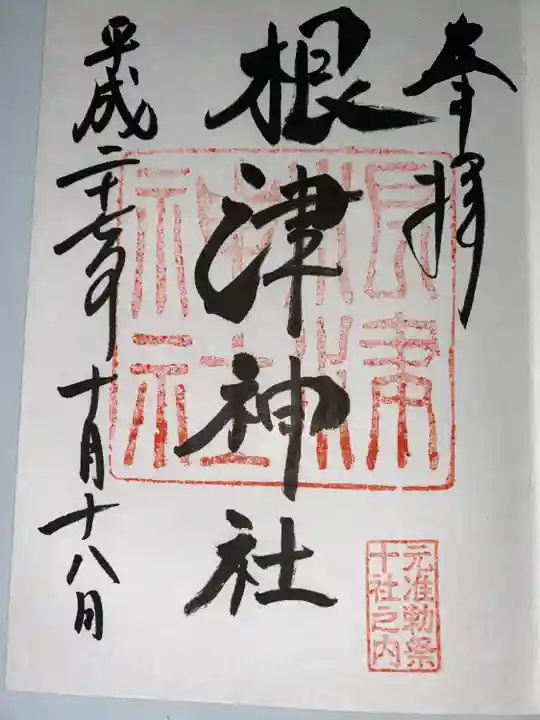 奉拝
根津神社
根津神社
平成二十七年十月十八日
元准勅祭
十社之内